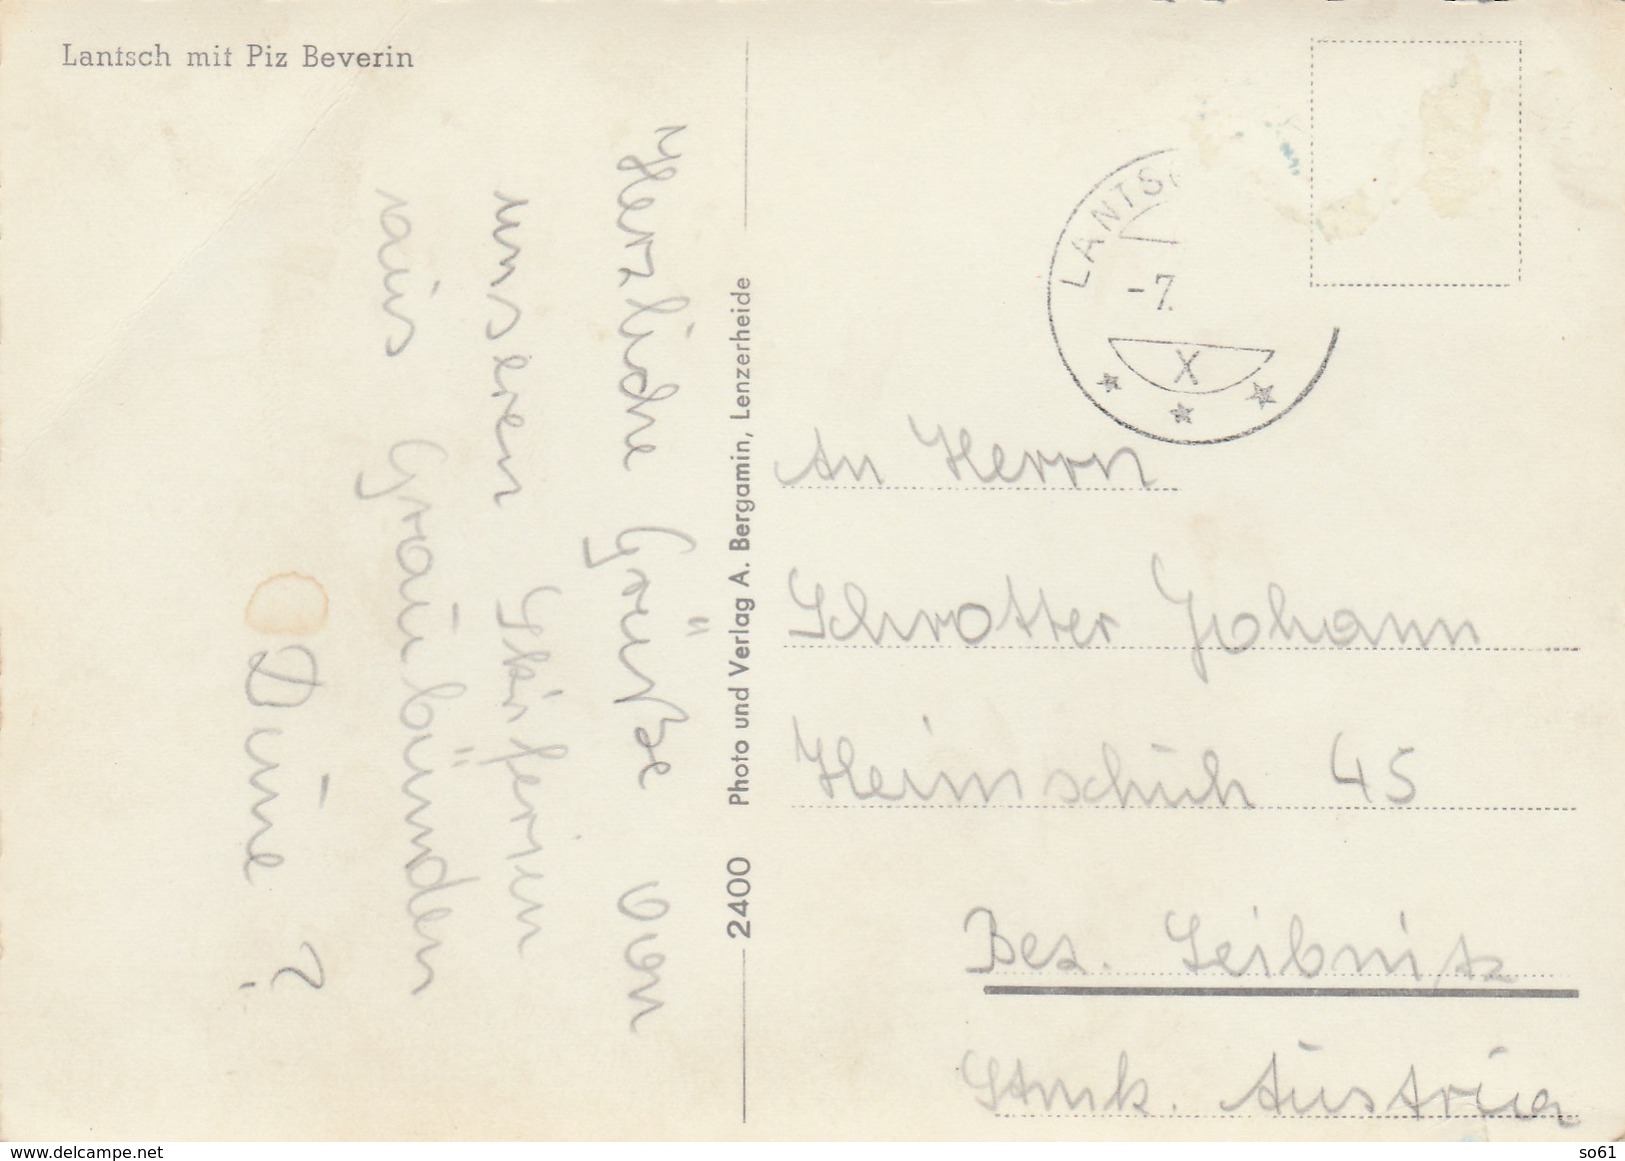 Lantsch mit Piz Beverin
Herzliche Grüße von
unseren Skiferien
aus Graubünden
Photo und Verlag A. Bergamin, Lenzerheide
2400
LANTS
-7.
X
An Herrn
Schrotter Johann
Heimschuh 45
Bez. Leibnitz
Stmk. Austria
delcampe.net
so61